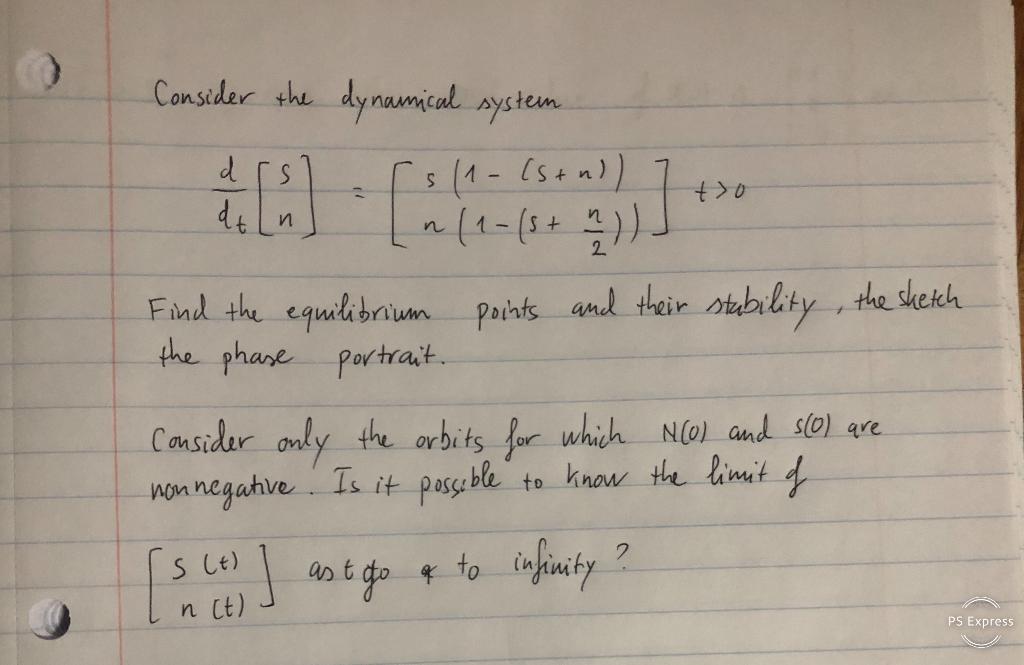 Consider the dynamical system
d/dt [s n] = [s (1 - (s + n)) n (1 - (s + n/2))] t > 0
Find the equilibrium points and their stability, the sketch
the phase portrait.
Consider only the orbits for which N(0) and s(0) are
nonnegative. Is it possible to know the limit of
[s (t) n (t)] as t go to infinity?
PS Express